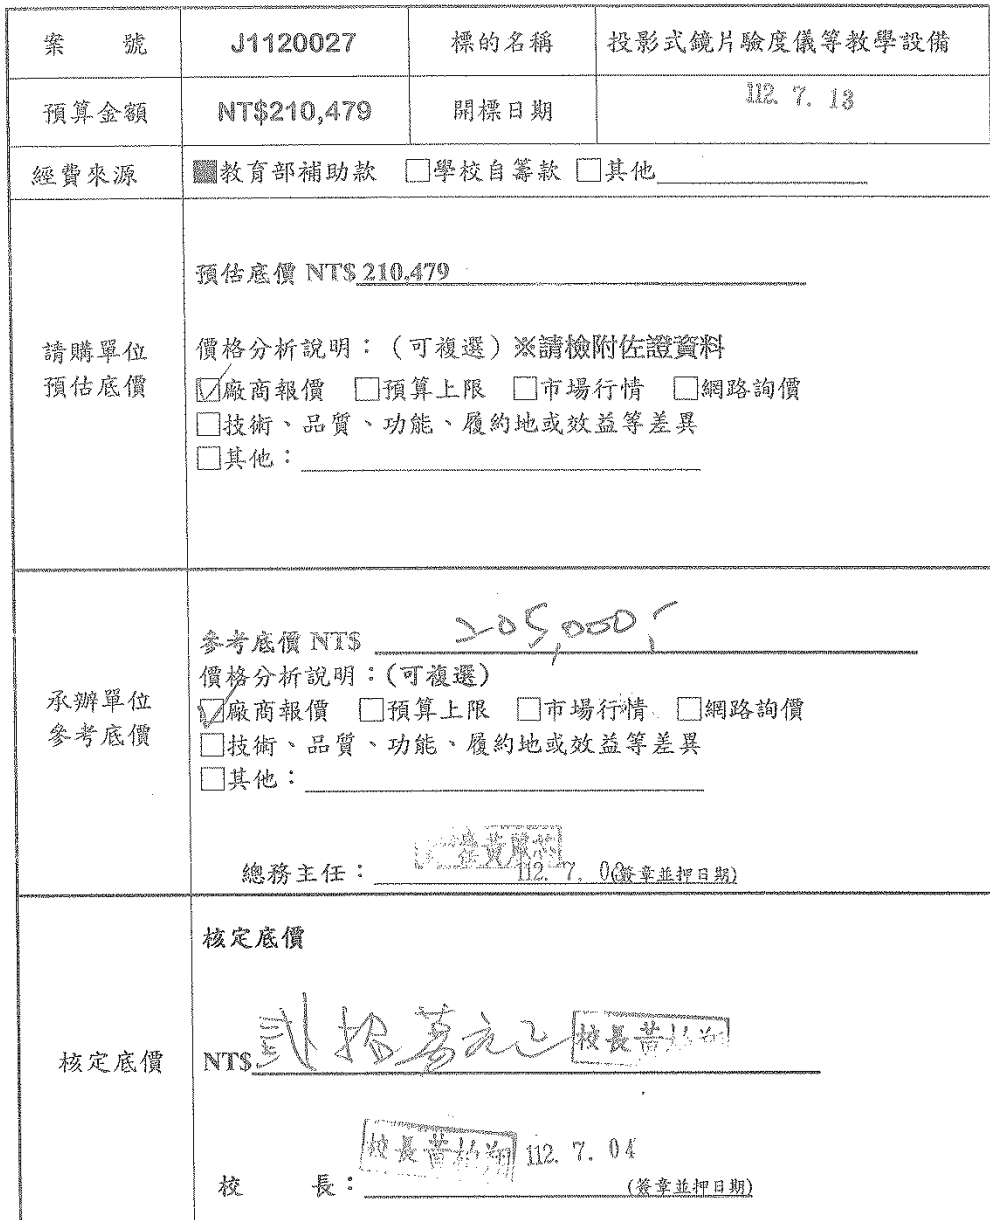 案 號 J1120027 標的名稱 投影式鏡片驗度儀等教學設備
預算金額 NT$210,479 開標日期 112. 7. 13
經費來源 ■教育部補助款 □學校自籌款 □其他
預估底價 NT$ 210,479
請購單位
預估底價
價格分析說明：（可複選）※請檢附佐證資料
☑廠商報價 □預算上限 □市場行情 □網路詢價
□技術、品質、功能、履約地或效益等差異
□其他：
參考底價 NT$ 205,000
承辦單位
參考底價
價格分析說明：(可複選)
☑廠商報價 □預算上限 □市場行情 □網路詢價
□技術、品質、功能、履約地或效益等差異
□其他：
總務主任： 112. 7. (簽章並押日期)
核定底價
核定底價
NT$ 貳拾萬元 校長黃柏翔
校長黃柏翔 112. 7. 04
校 長： (簽章並押日期)